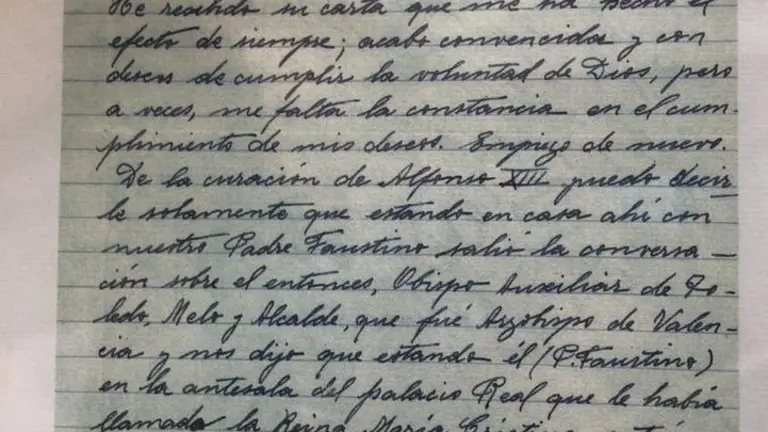 He recibido su carta que me ha hecho el
efecto de siempre; acabo convencida y con
deseos de cumplir la voluntad de Dios, pero
a veces, me falta la constancia en el cum-
plimiento de mis deseos. Empiezo de nuevo.
De la curación de Alfonso XIII puedo decir
le solamente que estando en casa ahí con
nuestro Padre Faustino salió la conversa-
ción sobre el entonces, Obispo Auxiliar de To-
ledo, Melo y Alcalde, que fué Arzobispo de Valen-
cia y nos dijo que estando él (P. Faustino)
en la antesala del palacio Real que le había
llamado la Reina María Cristina